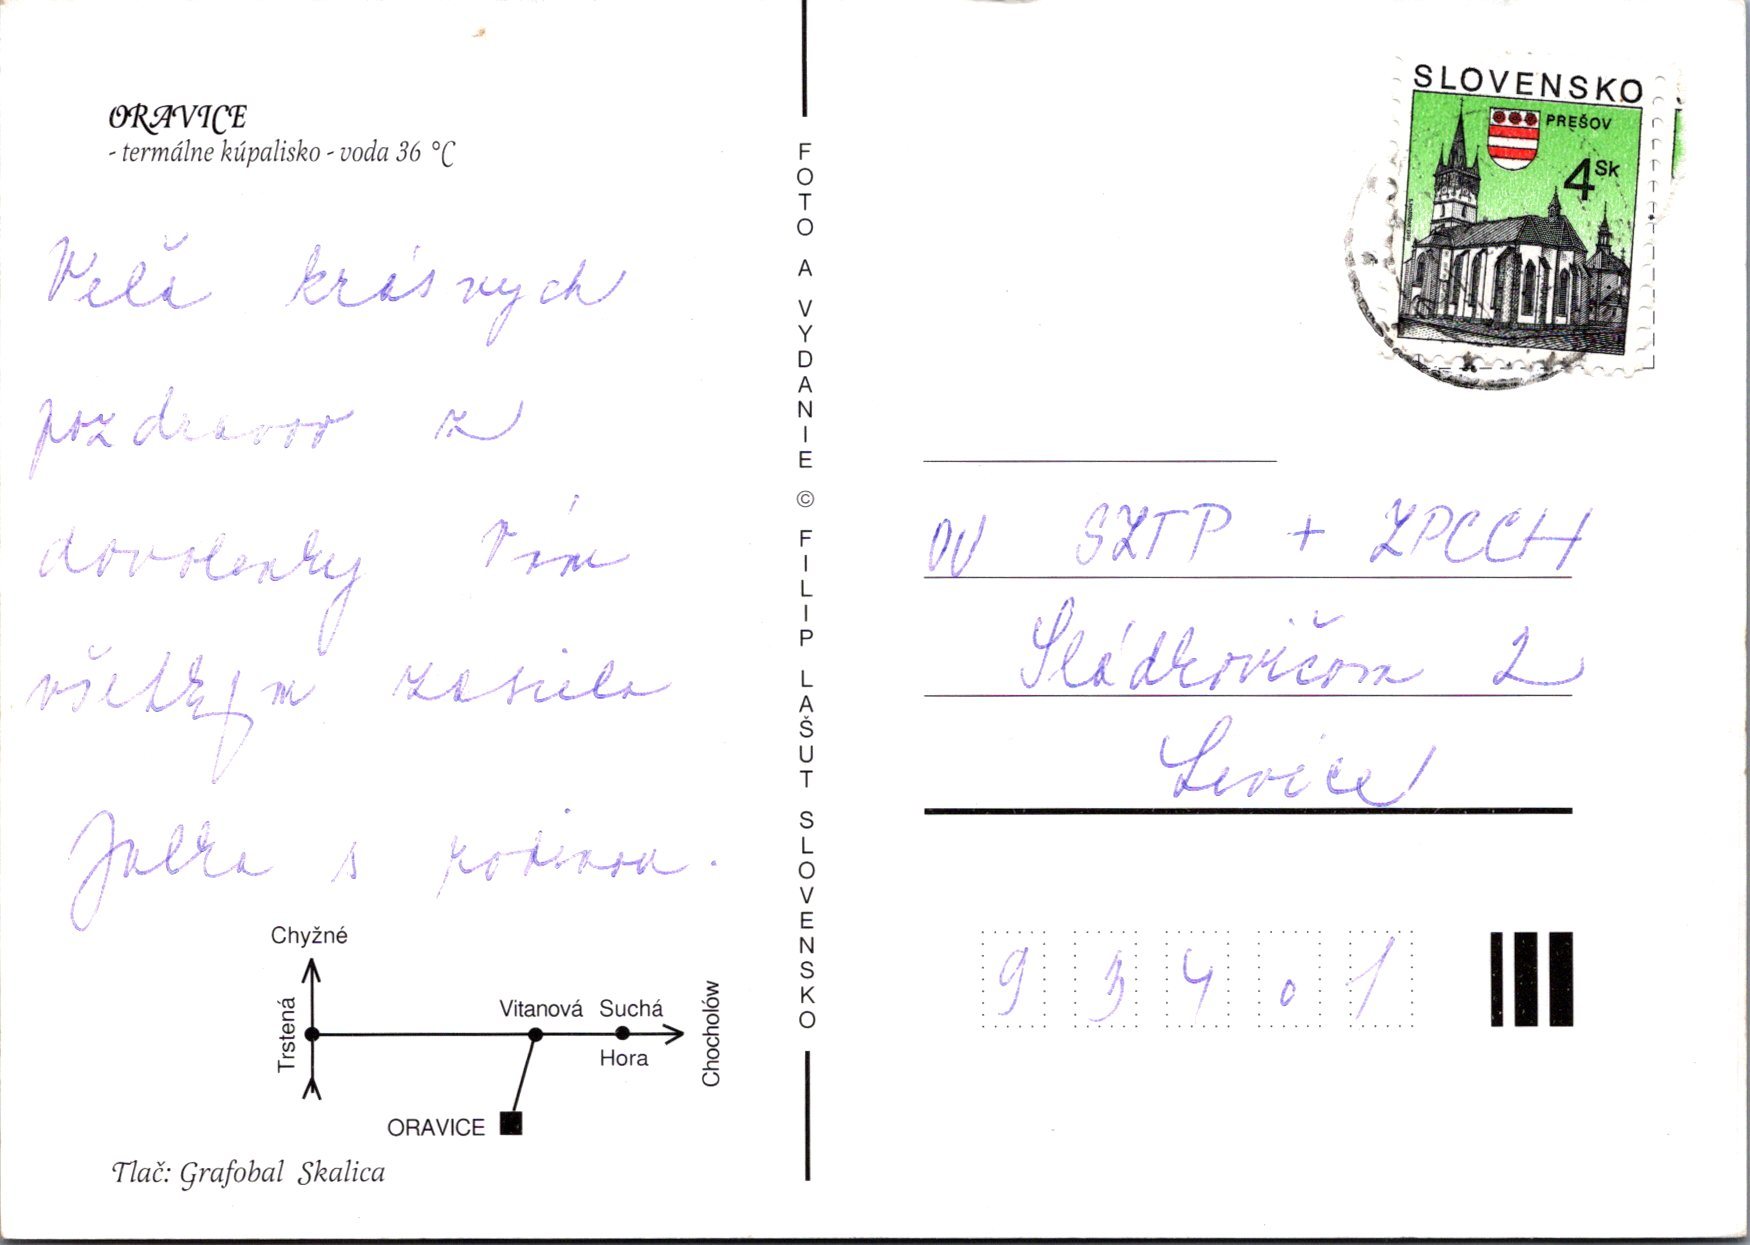 ORAVICE
- termálne kúpalisko - voda 36 °C
Veľa krásnych
pozdravov z
dovolenky Vám
všetkým zasiela
Julka s rodinou.
Chyžné
Trstená
Vitanová
Suchá
Hora
Chocholów
ORAVICE
Tlač: Grafobal Skalica
FOTO A VYDANIE © FILIP LAŠUT SLOVENSKO
SLOVENSKO
PREŠOV
4 Sk
OV SZTP + ZPCCH
Sládkovičova 2
Levice
93401